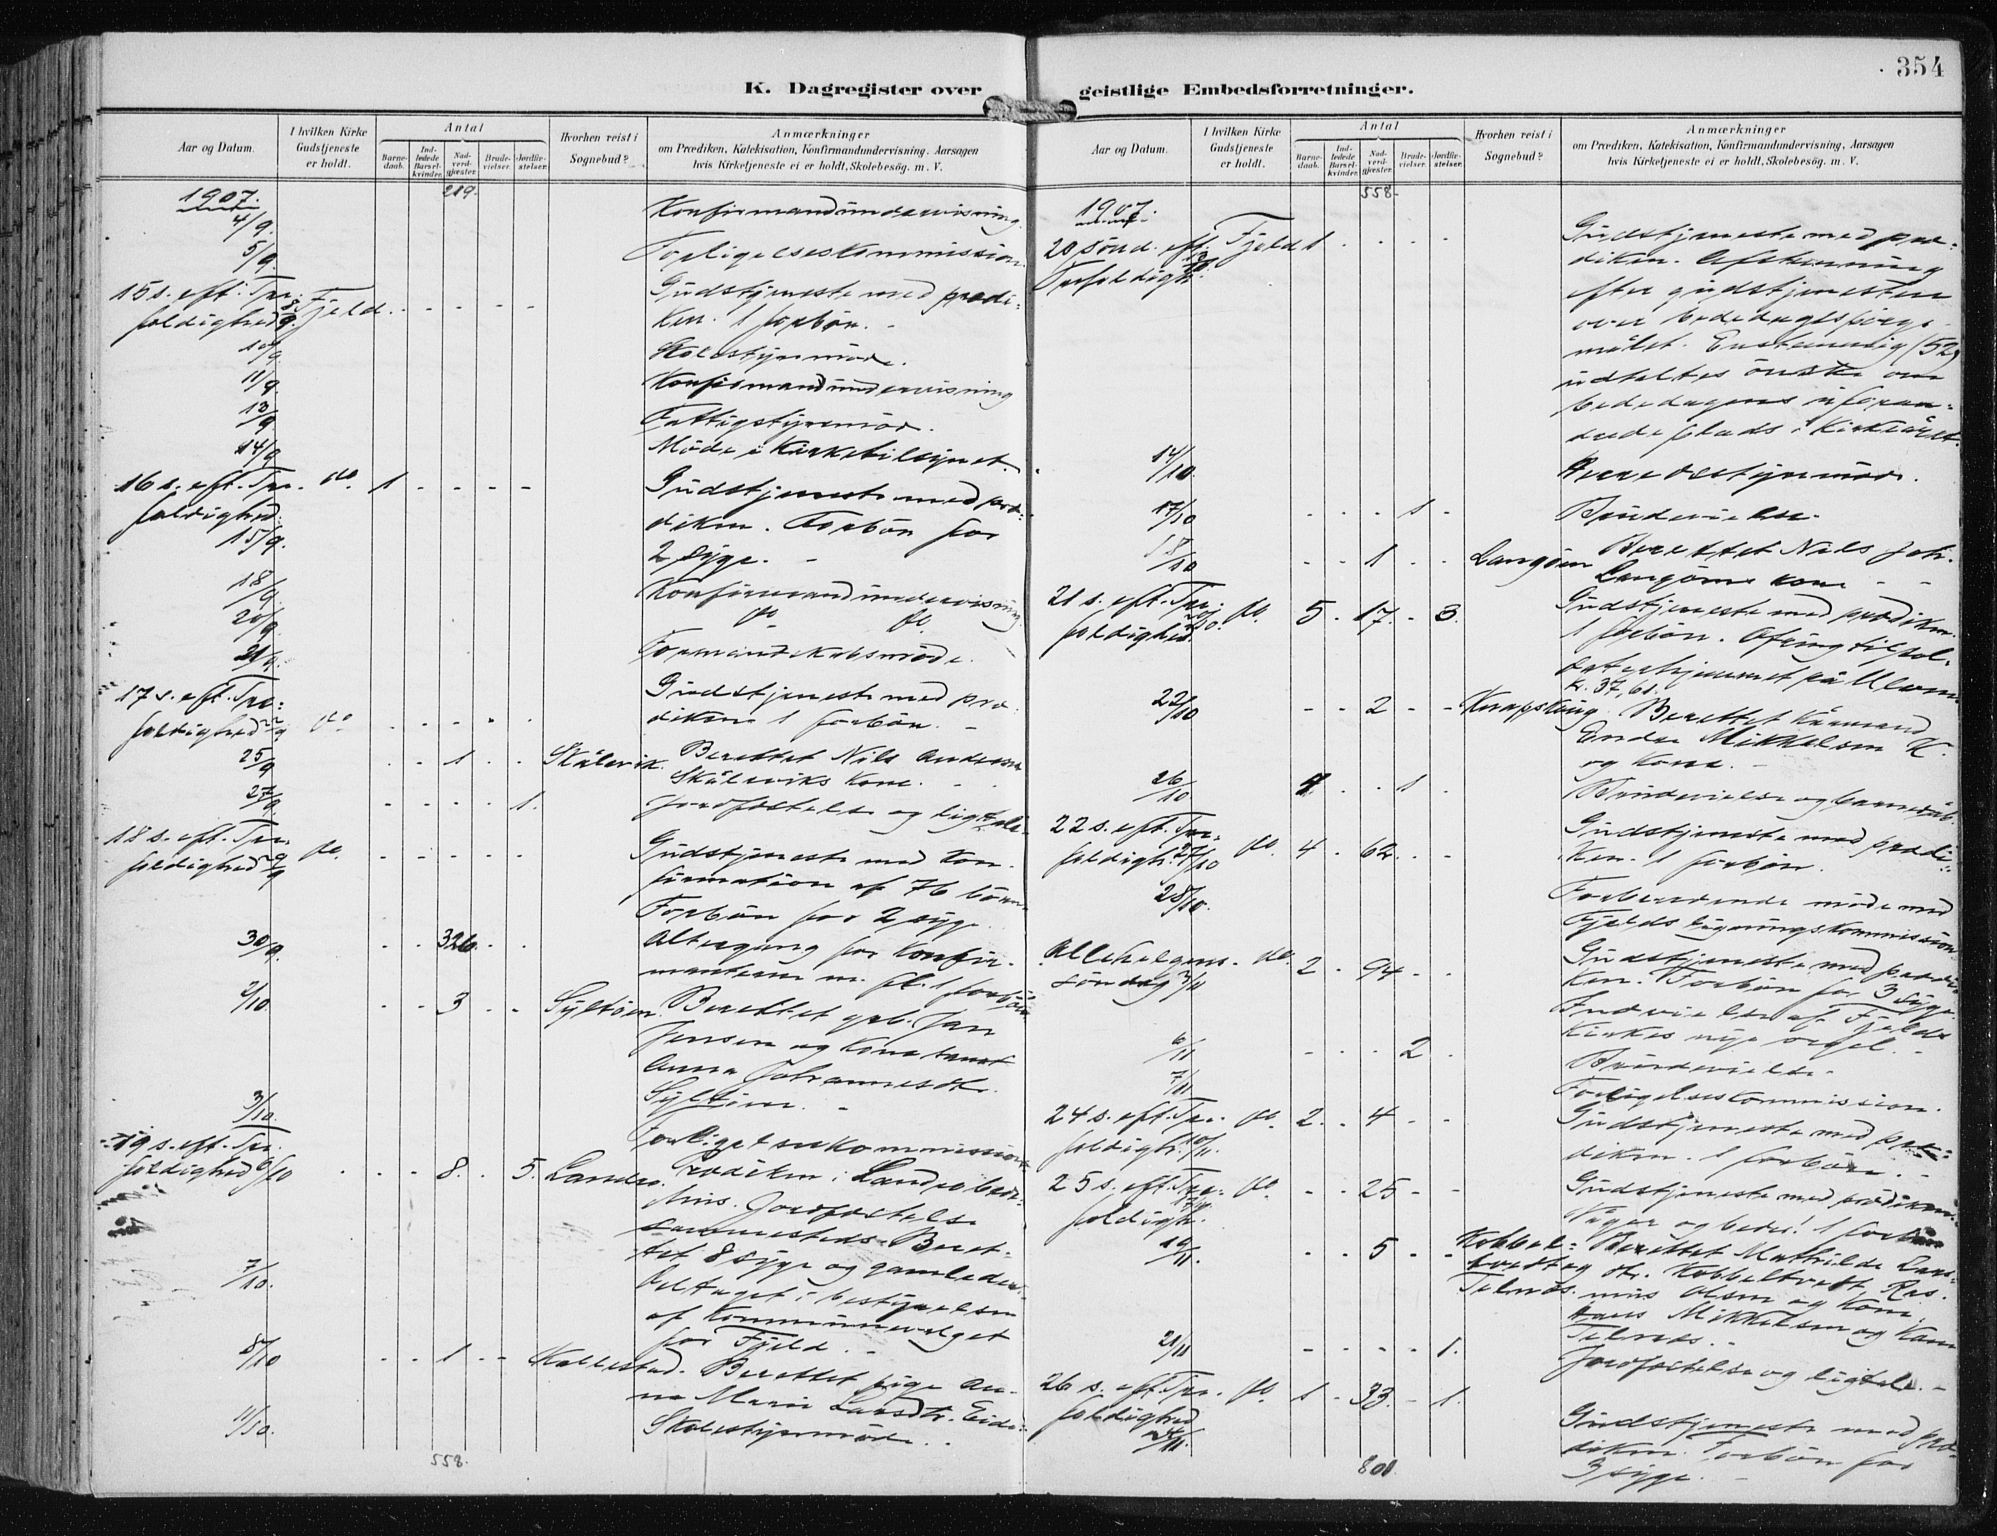 354
K. Dagregister over geistlige Embedsforretninger.
Aar og Datum.
I hvilken Kirke Gudstjeneste er holdt.
Antal
Barnedaab.
Indledede Barselkvinder.
Nadverdgjæster.
Brudevielser.
Jordfæstelser.
Hvorhen reist i Sognebud?
Anmærkninger
om Prædiken, Katekisation, Konfirmandundervisning. Aarsagen
hvis Kirketjeneste ei er holdt, Skolebesøg. m. V.
1907. 219.
4/9. Konfirmandundervisning
5/9. Forligelseskommission.
15 s. eft. Tre- Gudstjeneste med prædi-
foldighed 8/9. Fjeld. - - - - - ken. 1 forbön.
10/9. Skolestyremöde.
11/9. Konfirmandundervisning
13/9 Fattigstyremöde.
14/9 Möde i Kirketilsynet.
16 s. eft. Tre- do. 1 - - - - Gudstjeneste med præ-
foldighed. diken. Forbön for
15/9. 2 syge.
18/9. Konfirmandundervisning
20/9. do do.
21/9. Formandskabsmöde.
17 s. eft. Tre- Gudstjeneste med præ-
foldighed 22/9 do - - - - - diken 1 forbön.
25/9 - - 1 - - Skålevik. Berettet Nils Andersen
Skåleviks Kone.
27/9. - - - - 1. Jordfæstelse og ligtale.
18 s. eft. Tre-
foldighed 29/9 do. - - - - - Gudstjeneste med kon-
firmation af 76 börn.
Forbön for 2 syge.
30/9. - - 326 - - Altergang for konfir-
manterne m. fl. 1 forbön
2/10. - - 3 - - Syltöen. Berettet grb. Jan
Jensen og Kone samt
Anna Johannesdtr.
Syltöen.
3/10. Forligelseskommission
19 s. eft. Tre-
foldighed 6/10 - - 8 - 5. Landro. Prædiken i Landro bede-
hus. Jordfæstelse
sammesteds. Beret-
tet 8 syge og gamle der.
7/10. Deltaget i bestyrelsen
af Kommunevalget
for Fjeld.
8/10 - - 1 - - Kallestad. Berettet pige An-
na Marie Larsdtr. Eide.
11/10. Skolestyremöde.
558.
Aar og Datum.
I hvilken Kirke Gudstjeneste er holdt.
Antal
Barnedaab.
Indledede Barselkvinder.
Nadverdgjæster.
Brudevielser.
Jordfæstelser.
Hvorhen reist i Sognebud?
Anmærkninger
om Prædiken, Katekisation, Konfirmandundervisning, Aarsagen
hvis Kirketjeneste ei er holdt, Skolebesög. m. V.
1907. 558.
20 sönd. eft. Fjeld 1 - - - - Gudstjeneste med præ-
Trefoldigh. 13/10. diken. Afstemning
efter gudstjenesten
over bededagsspörgs-
målet. Enstemmig (52)
udtaltes önske om
bededagens uforan-
drede plads i Kirkeåret.
14/10 Herredsstyremöde.
17/10 - - - 1 - Brudevielse.
18/10 - - 1 - - Langöen Berettet Nils Joh.
Langöens kone
21 s. eft. Tre-
foldighed 20/10. do. 5 - 17 - 3. Gudstjeneste med prædiken
1 forbön. Ofring til sol-
daterhjemmet på Ulven
k. 37,61.
22/10 - - 2 - - Knapskog. Berettet Kårmand
Endre Mikkelsen K.
og Kone.
26/10 1 - - 1 - Brudevielse og barnedåb.
22 s. eft. Tre-
foldigh. 27/10 do. 4 - 62 - - Gudstjeneste med prædi-
ken. 1 forbön.
28/10. Forberedende möde med
Fjelds ligningskommission
Allehelgens- do. 2 - 94 - - Gudstjeneste med prædi-
söndag 3/11 ken. Forbön for 3 syge.
Indvielse af Fjelds
Kirkes nye orgel.
6/11 - - - 2 Brudevielse.
7/11 Forligelseskommission.
24 s. eft. Tre- do. 2 - 4 - - Gudstjeneste med præ-
foldigh. 10/11. diken. 1 forbön.
25 s. eft. Tre- do. - - 25 - - Gudstjeneste med prædiken.
foldigh. 17/11. Våger og beder! 1 forbön
19/11. - - 5 - - Kobbel- Berettet Mathilde Lars-
tvedt og dtr. Kobbeltvedt, Ras-
Telnæs. mus Olsen og Kone,
Hans Mikkelsen og Kone
Telnæs.
21/11 - - - - 1. Jordfæstelse og ligtale.
26 s. eft. Tre- do. 1 - 33 - 1.
foldighed 24/11. Gudstjeneste med præ-
diken. Forbön for
3 syge.
801